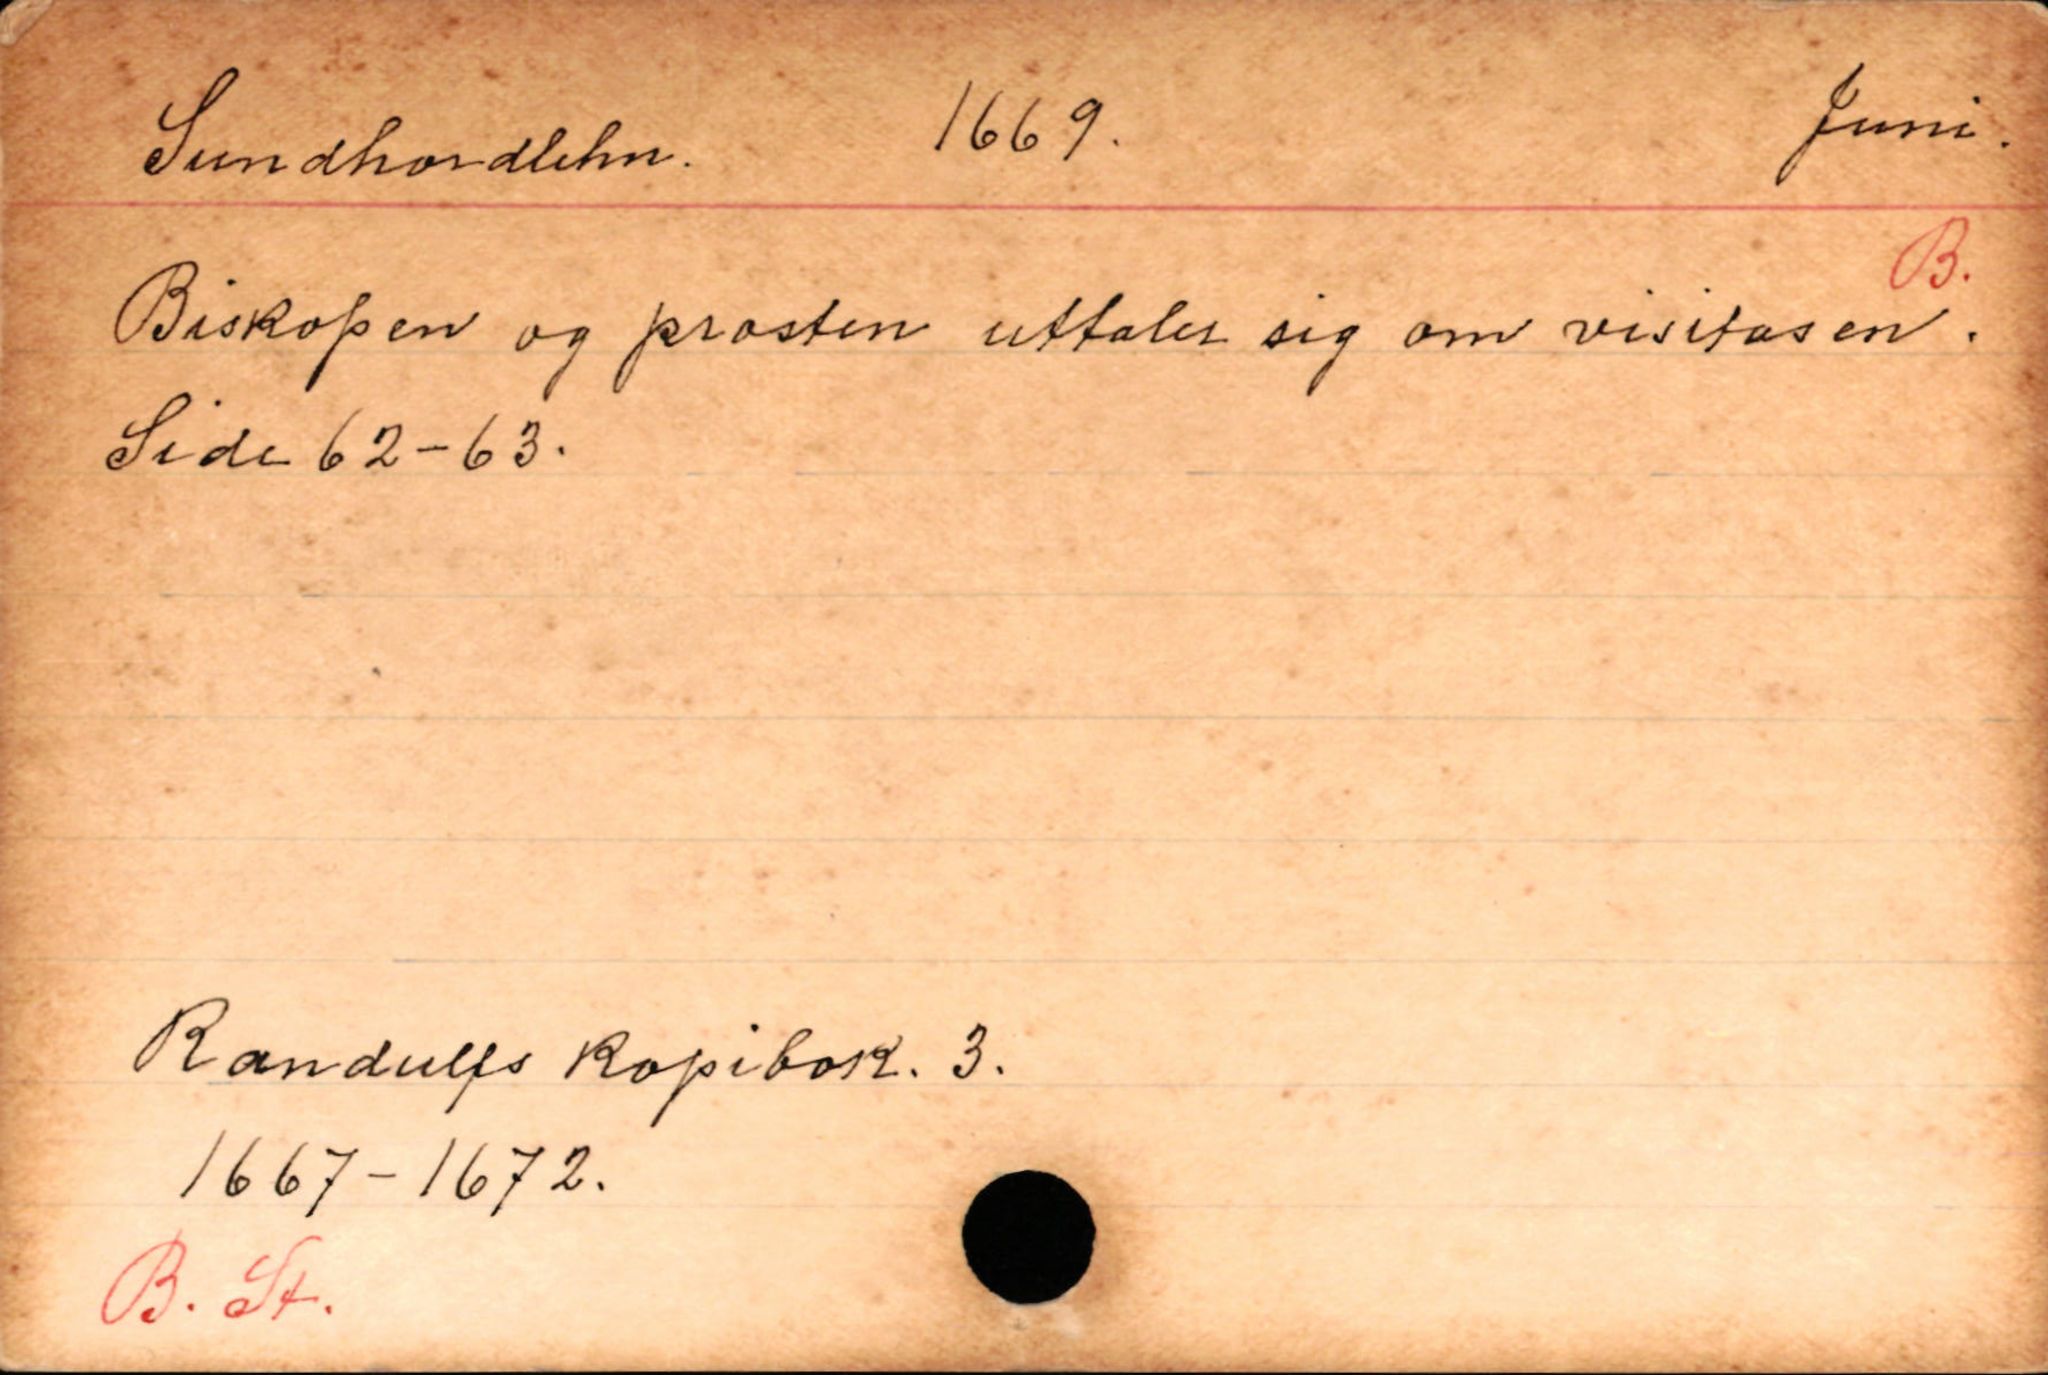 Sundhordlehn. 1669. Juni.
B.
Biskopen og prosten uttaler sig om visitasen.
Side 62-63.
Randulfs kopibok. 3.
1667-1672.
B. St.